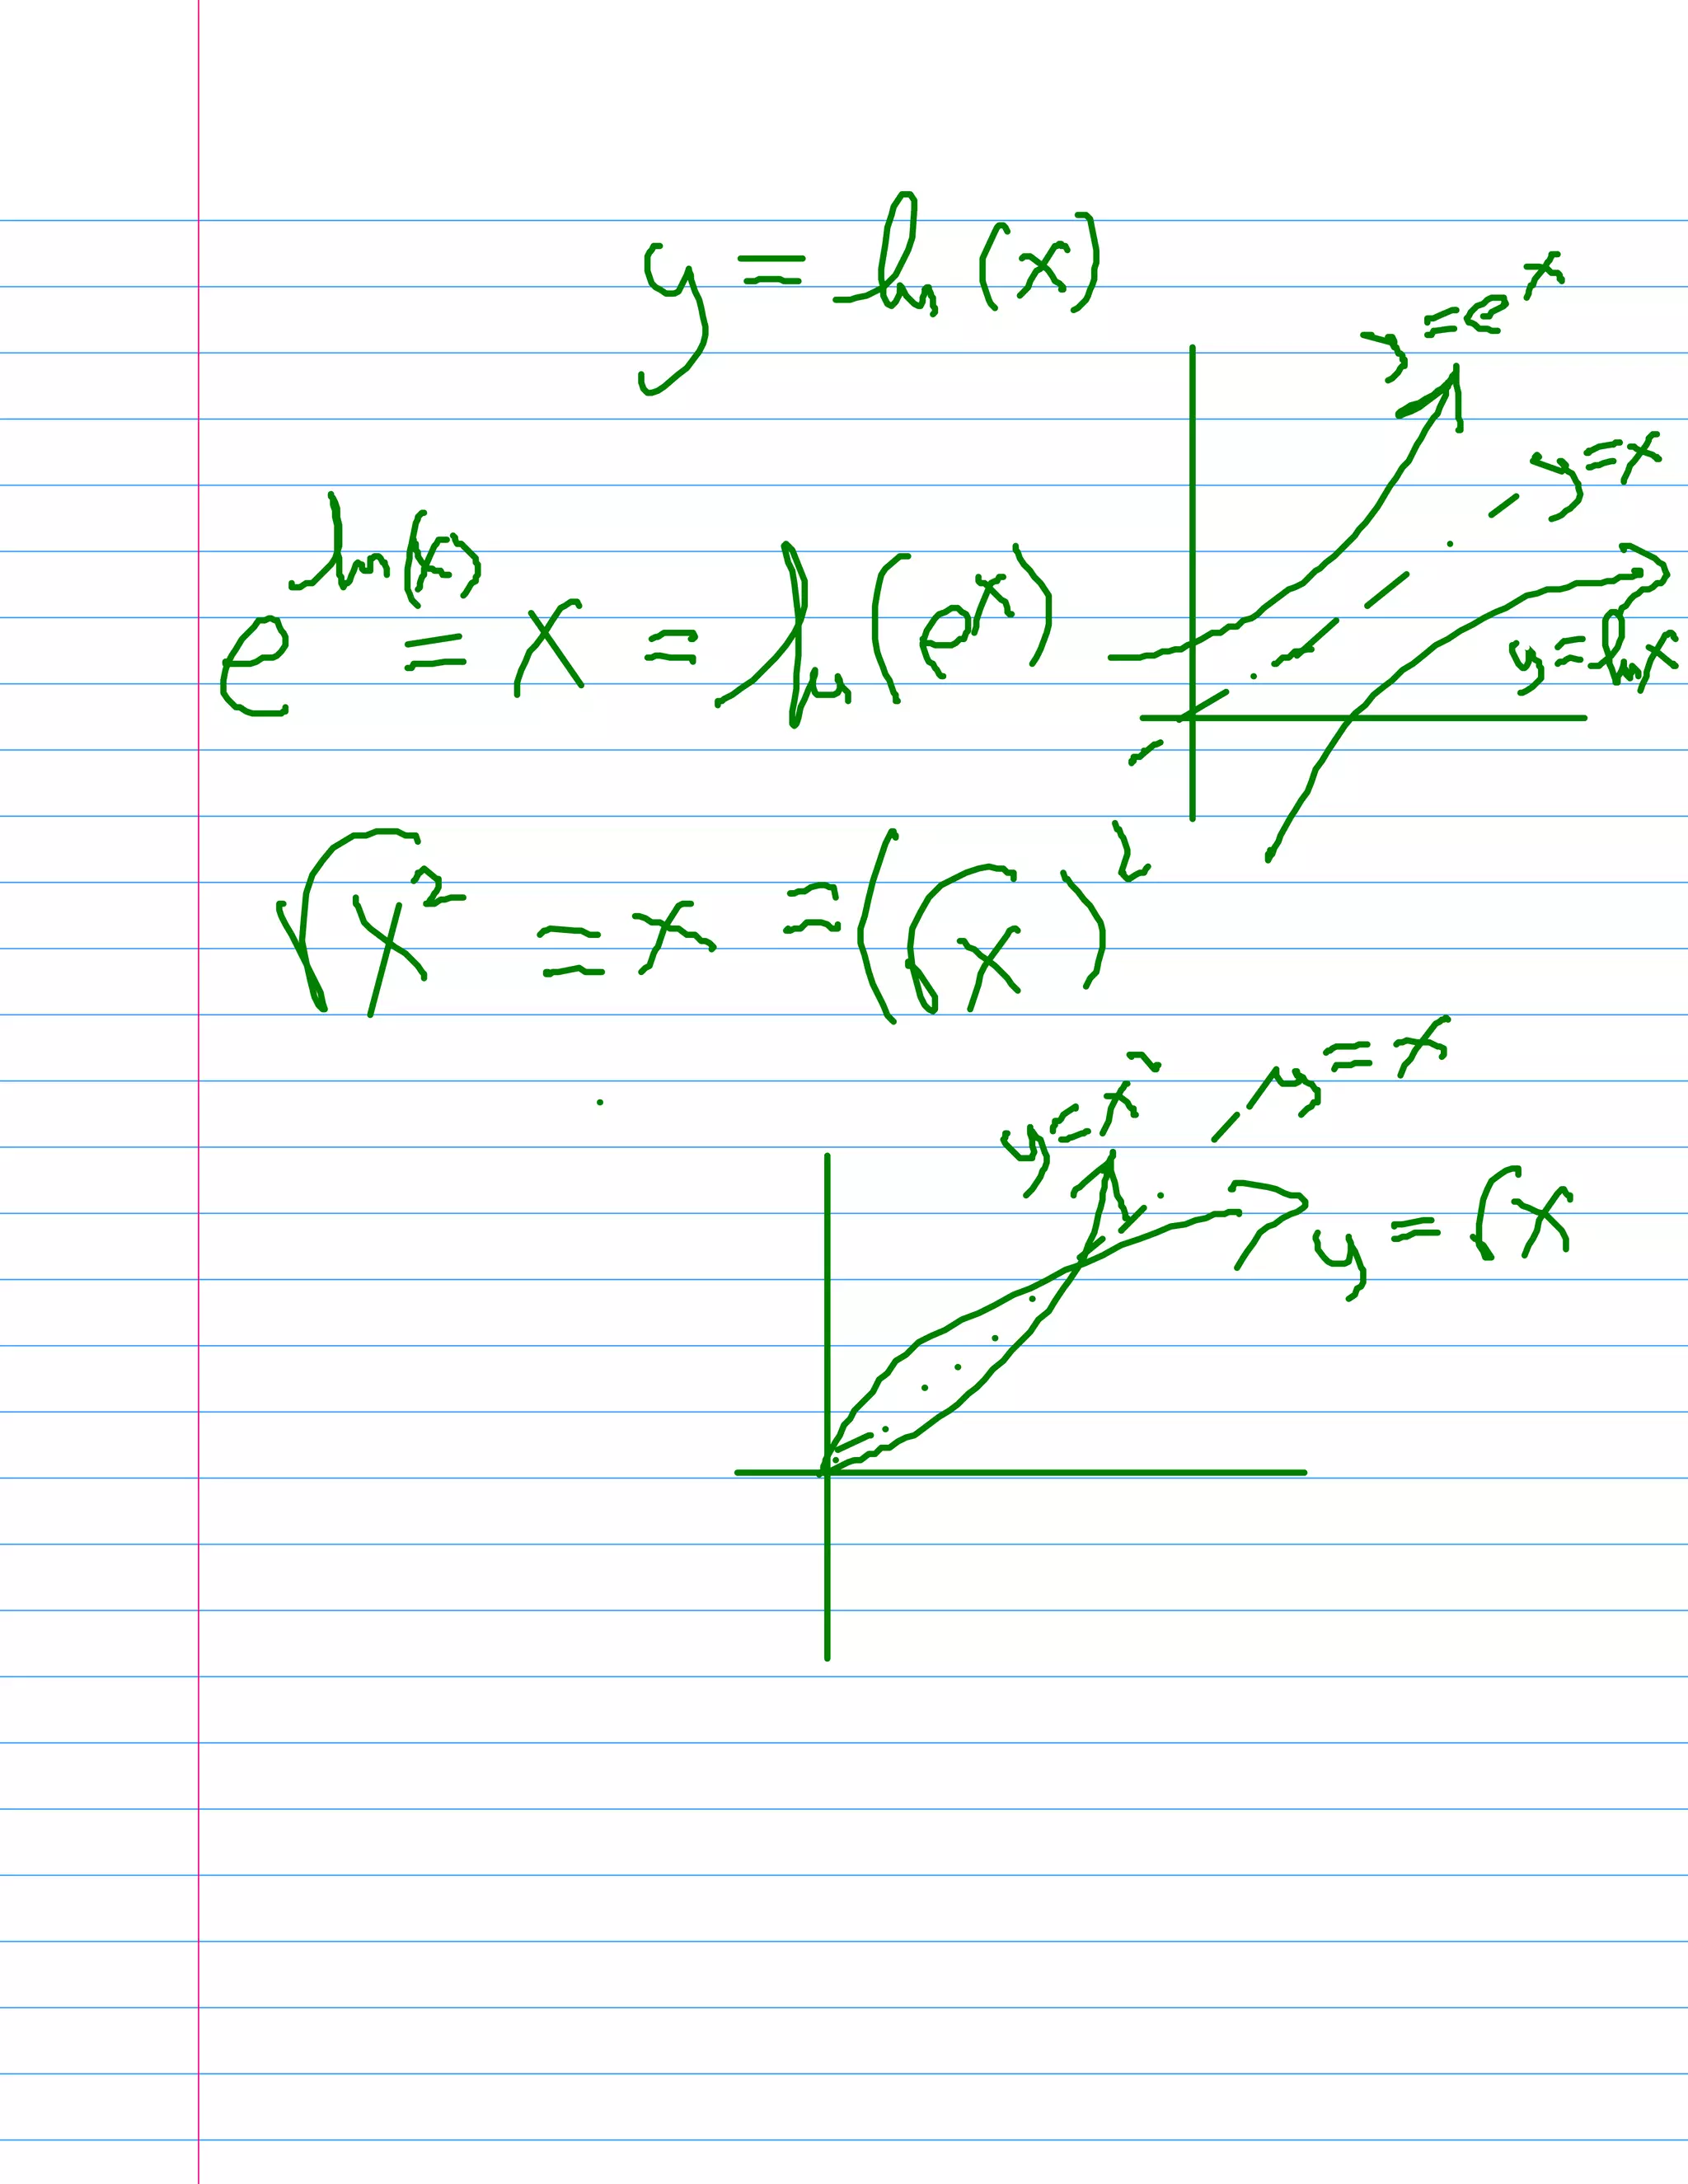 y = ln(x)
y = e^x
y = x
e^ln(x) = x = ln(e^x)
y = ln x
√x² = x = (√x)²
y = x²
y = x
y = √x